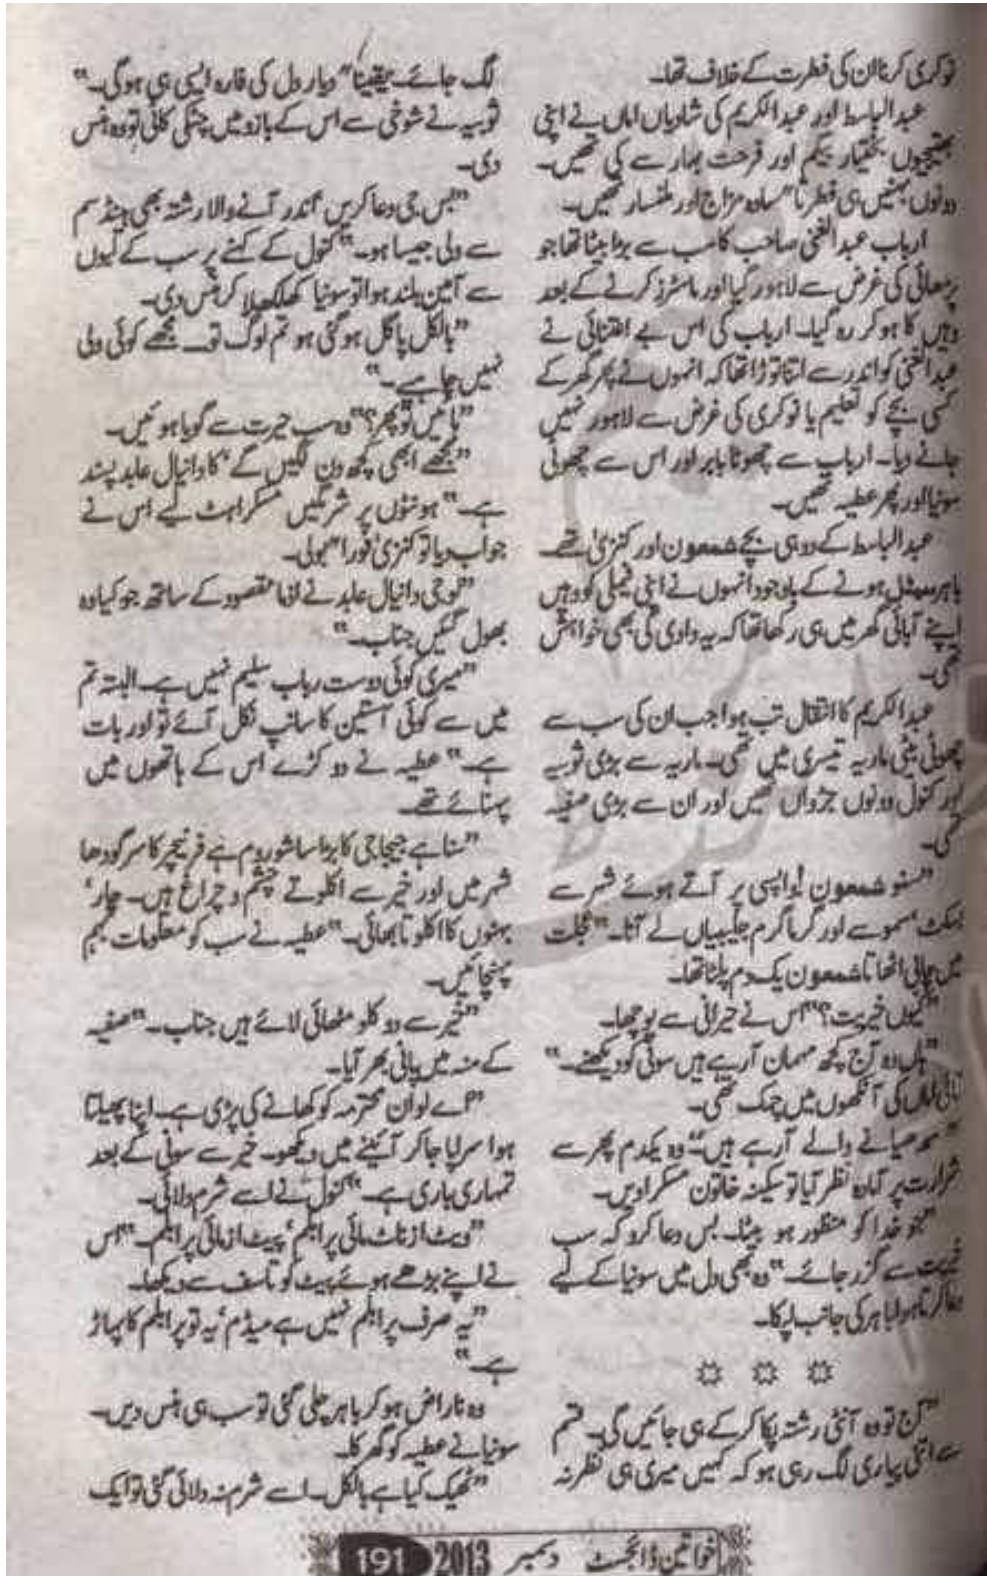 نوکری کرنا ان کی فطرت کے خلاف تھا۔
عبدالباسط اور عبدالکریم کی شادیاں اماں نے اپنی
بھتیجیوں بختیار بیگم اور فرحت بہار سے کی تھیں۔
دونوں بہنیں ہی فطرتاً سادہ مزاج اور ملنسار تھیں۔
ارباب عبدالغنی صاحب کا سب سے بڑا بیٹا تھا جو
پڑھائی کی غرض سے لاہور گیا اور ماسٹرز کرنے کے بعد
وہیں کا ہو کر رہ گیا۔ ارباب کی اس بے اعتنائی نے
عبدالغنی کو اندر سے اتنا توڑا تھا کہ انہوں نے پھر گھر کے
کسی بچے کو تعلیم یا نوکری کی غرض سے لاہور نہیں
جانے دیا۔ ارباب سے چھوٹا بابر اور اس سے چھوٹی
سونیا اور پھر عطیہ تھیں۔
عبدالباسط کے دو ہی بچے شمعون اور کنزیٰ تھے۔
باہر سیٹل ہونے کے باوجود انہوں نے اپنی فیملی کو وہیں
اپنے آبائی گھر میں ہی رکھا تھا کہ یہ دادی کی بھی خواہش
تھی۔
عبدالکریم کا انتقال تب ہوا جب ان کی سب سے
چھوٹی بیٹی ماریہ تیسری میں تھی۔ ماریہ سے بڑی ثوبیہ
اور کنول دونوں جڑواں تھیں اور ان سے بڑی صفیہ
تھی۔
”سنو شمعون! واپسی پر آتے ہوئے شہر سے
بسکٹ، سموسے اور گرما گرم جلیبیاں لے آنا۔“ عجلت
میں چابی اٹھاتا شمعون یک دم پلٹا تھا۔
”کیوں خیریت؟“ اس نے حیرانی سے پوچھا۔
”ہاں وہ آج کچھ مہمان آ رہے ہیں سونی کو دیکھنے۔“
اماں کی آنکھوں میں چمک تھی۔
والے آ رہے ہیں۔“ وہ یکدم پھر سے
شرارت پر آمادہ نظر آیا تو سکینہ خاتون مسکرا دیں۔
”جو خدا کو منظور ہو بیٹا۔ بس دعا کرو کہ سب
خیریت سے گزر جائے۔“ وہ بھی دل میں سونیا کے لیے
دعا کرتا ہوا باہر کی جانب لپکا۔
”آج تو وہ آنٹی رشتہ پکا کر کے ہی جائیں گی۔ قسم
سے اتنی پیاری لگ رہی ہو کہ کہیں میری ہی نظر نہ
لگ جائے۔ یقیناً ”دیار دل کی فارہ ایسی ہی ہو گی۔“
ثوبیہ نے شوخی سے اس کے بازو میں چٹکی کاٹی تو وہ ہنس
دی۔
”بس جی دعا کریں اندر آنے والا رشتہ بھی ہینڈسم
سے ولی جیسا ہو۔“ کنول کے کہنے پر سب کے لبوں
سے آمین بلند ہوا تو سونیا کھلکھلا کر ہنس دی۔
”بالکل پاگل ہو گئی ہو تم لوگ تو۔ مجھے کوئی ولی
نہیں چاہیے۔“
”ہائیں تو پھر؟“ وہ سب حیرت سے گویا ہوئیں۔
”مجھے ابھی کچھ دن لگیں گے‘ کا دانیال عابد پسند
ہے۔“ ہونٹوں پر شرمگیں مسکراہٹ لیے اس نے
جواب دیا تو کنزیٰ فوراً بولی۔
”لو جی دانیال عابد نے انا مقصود کے ساتھ جو کیا وہ
بھول گئیں جناب۔“
”میری کوئی دوست رباب سلیم نہیں ہے۔ البتہ تم
میں سے کوئی آستین کا سانپ نکل آئے تو اور بات
ہے۔“ عطیہ نے دو کڑے اس کے ہاتھوں میں
پہنائے تھے۔
”سنا ہے جیجا جی کا بڑا سا شوروم ہے فرنیچر کا سرگودھا
شہر میں اور خیر سے اکلوتے چشم و چراغ ہیں۔ چار‘
بہنوں کا اکلوتا بھائی۔“ عطیہ نے سب کو معلومات بہم
پہنچائیں۔
”خیر سے دو کلو مٹھائی لائے ہیں جناب۔“ صفیہ
کے منہ میں پانی بھر آیا۔
”اے لو ان محترمہ کو کھانے کی پڑی ہے۔ اپنا پھیلتا
ہوا سراپا جا کر آئینے میں دیکھو۔ خیر سے سونی کے بعد
تمہاری باری ہے۔“ کنول نے اسے شرم دلائی۔
”ویٹ از ناٹ مائی پرابلم‘ پیٹ از مائی پرابلم۔“ اس
نے اپنے بڑھے ہوئے پیٹ کو تاسف سے دیکھا۔
”یہ صرف پرابلم نہیں ہے میڈم‘ یہ تو پرابلم کا پہاڑ
ہے۔“
وہ ناراض ہو کر باہر چلی گئی تو سب ہی ہنس دیں۔
سونیا نے عطیہ کو گھرکا۔
”ٹھیک کیا ہے بالکل۔ اسے شرم نہ دلائی گئی تو ایک
خواتین ڈائجسٹ دسمبر 2013 191